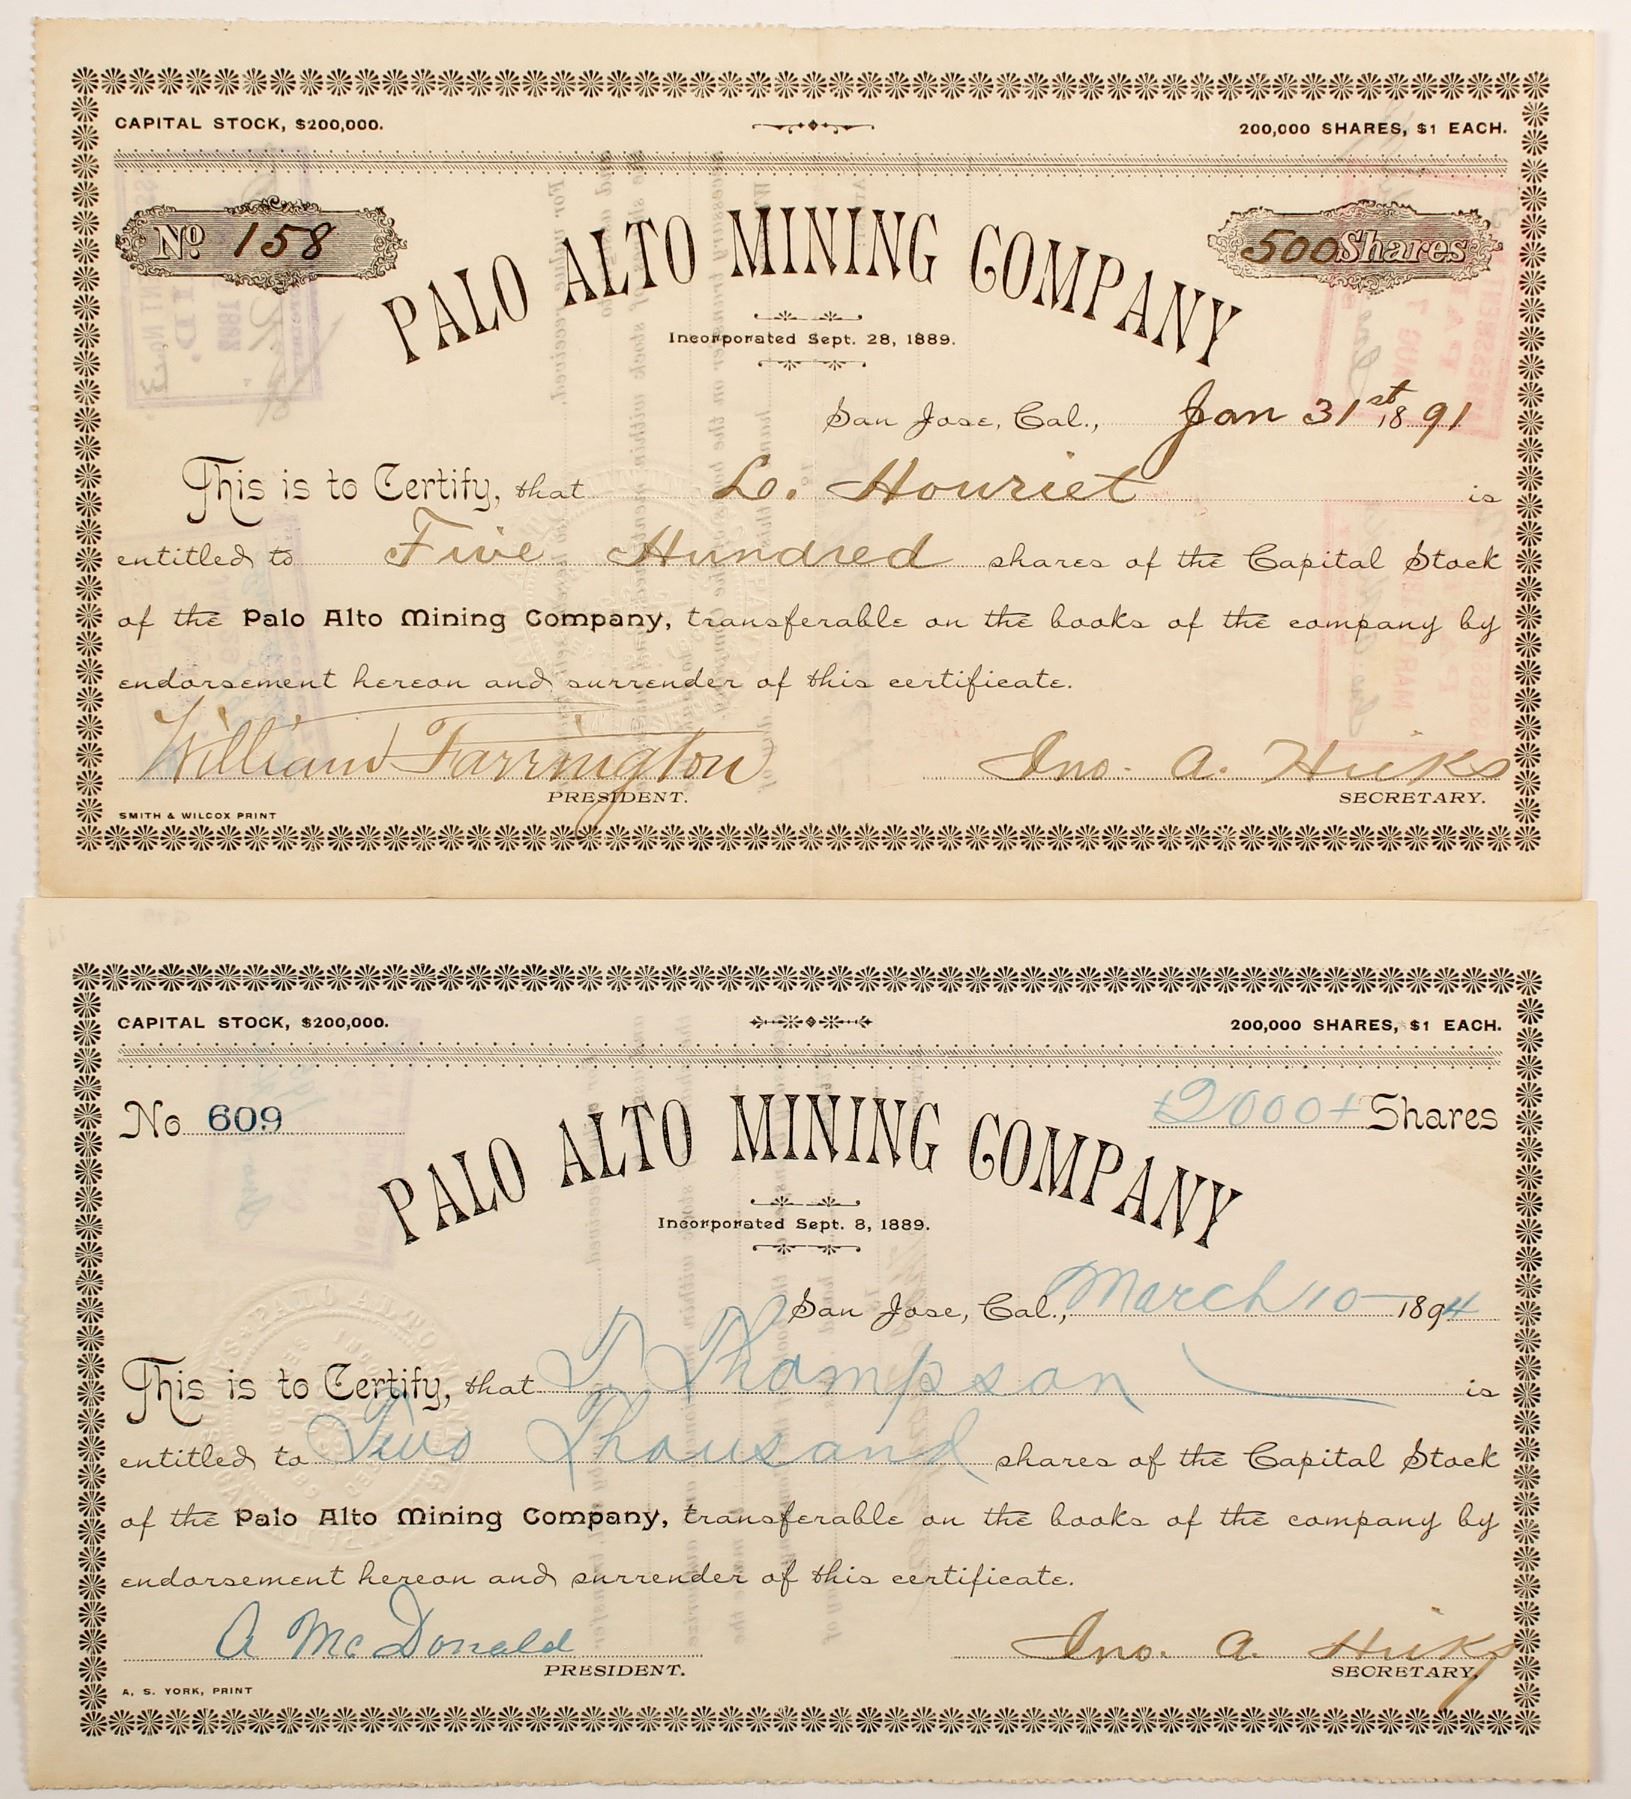 CAPITAL STOCK, $200,000. 200,000 SHARES, $1 EACH.
No 158 500 Shares
PALO ALTO MINING COMPANY
Incorporated Sept. 28, 1889.
San Jose, Cal., Jan 31st 1891
This is to Certify, that L. Houriet is
entitled to Five Hundred shares of the Capital Stock
of the Palo Alto Mining Company, transferable on the books of the company by
endorsement hereon and surrender of this certificate.
William Farrington Jno. A. Hicks
PRESIDENT. SECRETARY.
SMITH & WILCOX PRINT
CAPITAL STOCK, $200,000. 200,000 SHARES, $1 EACH.
No 609 2000 Shares
PALO ALTO MINING COMPANY
Incorporated Sept. 8, 1889.
San Jose, Cal., March 10 1894
This is to Certify, that T. Thompson is
entitled to Two Thousand shares of the Capital Stock
of the Palo Alto Mining Company, transferable on the books of the company by
endorsement hereon and surrender of this certificate.
A McDonald Jno. A. Hicks
PRESIDENT. SECRETARY.
A. S. YORK, PRINT